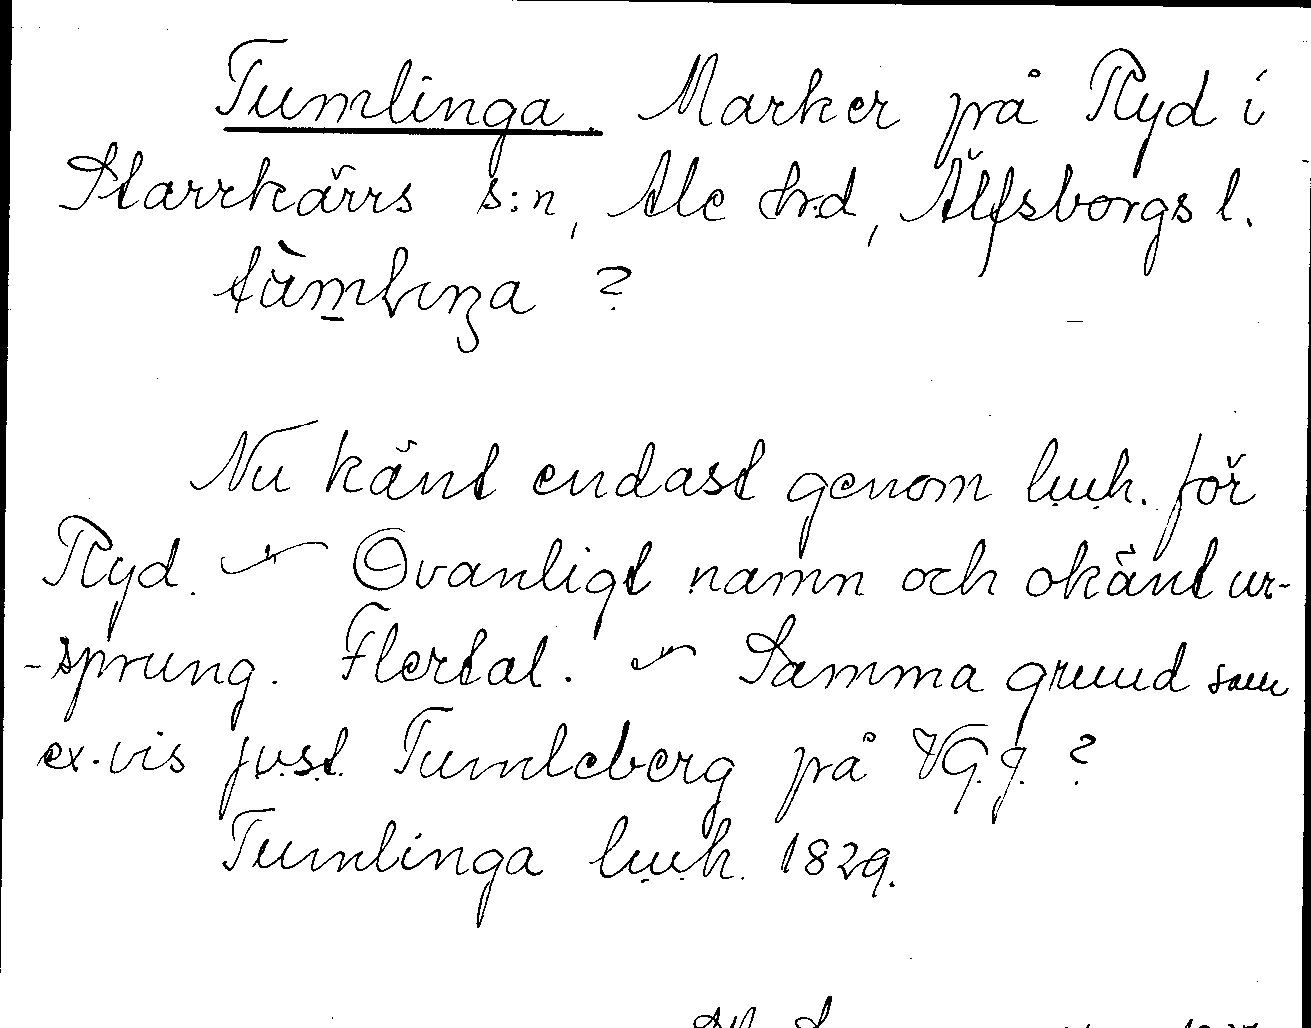 Tumlinga. Marker på Ryd i
Starrkärrs s:n, Ale hrd, Älfsborgs l.
Nu känt endast genom l.u.k. för
Ryd. – Ovanligt namn och okänt ur-
-sprung. Flertal. – Samma grund som
ex.vis just Tumleberg på VG.j. ?
Tumlinga l.u.k. 1829.